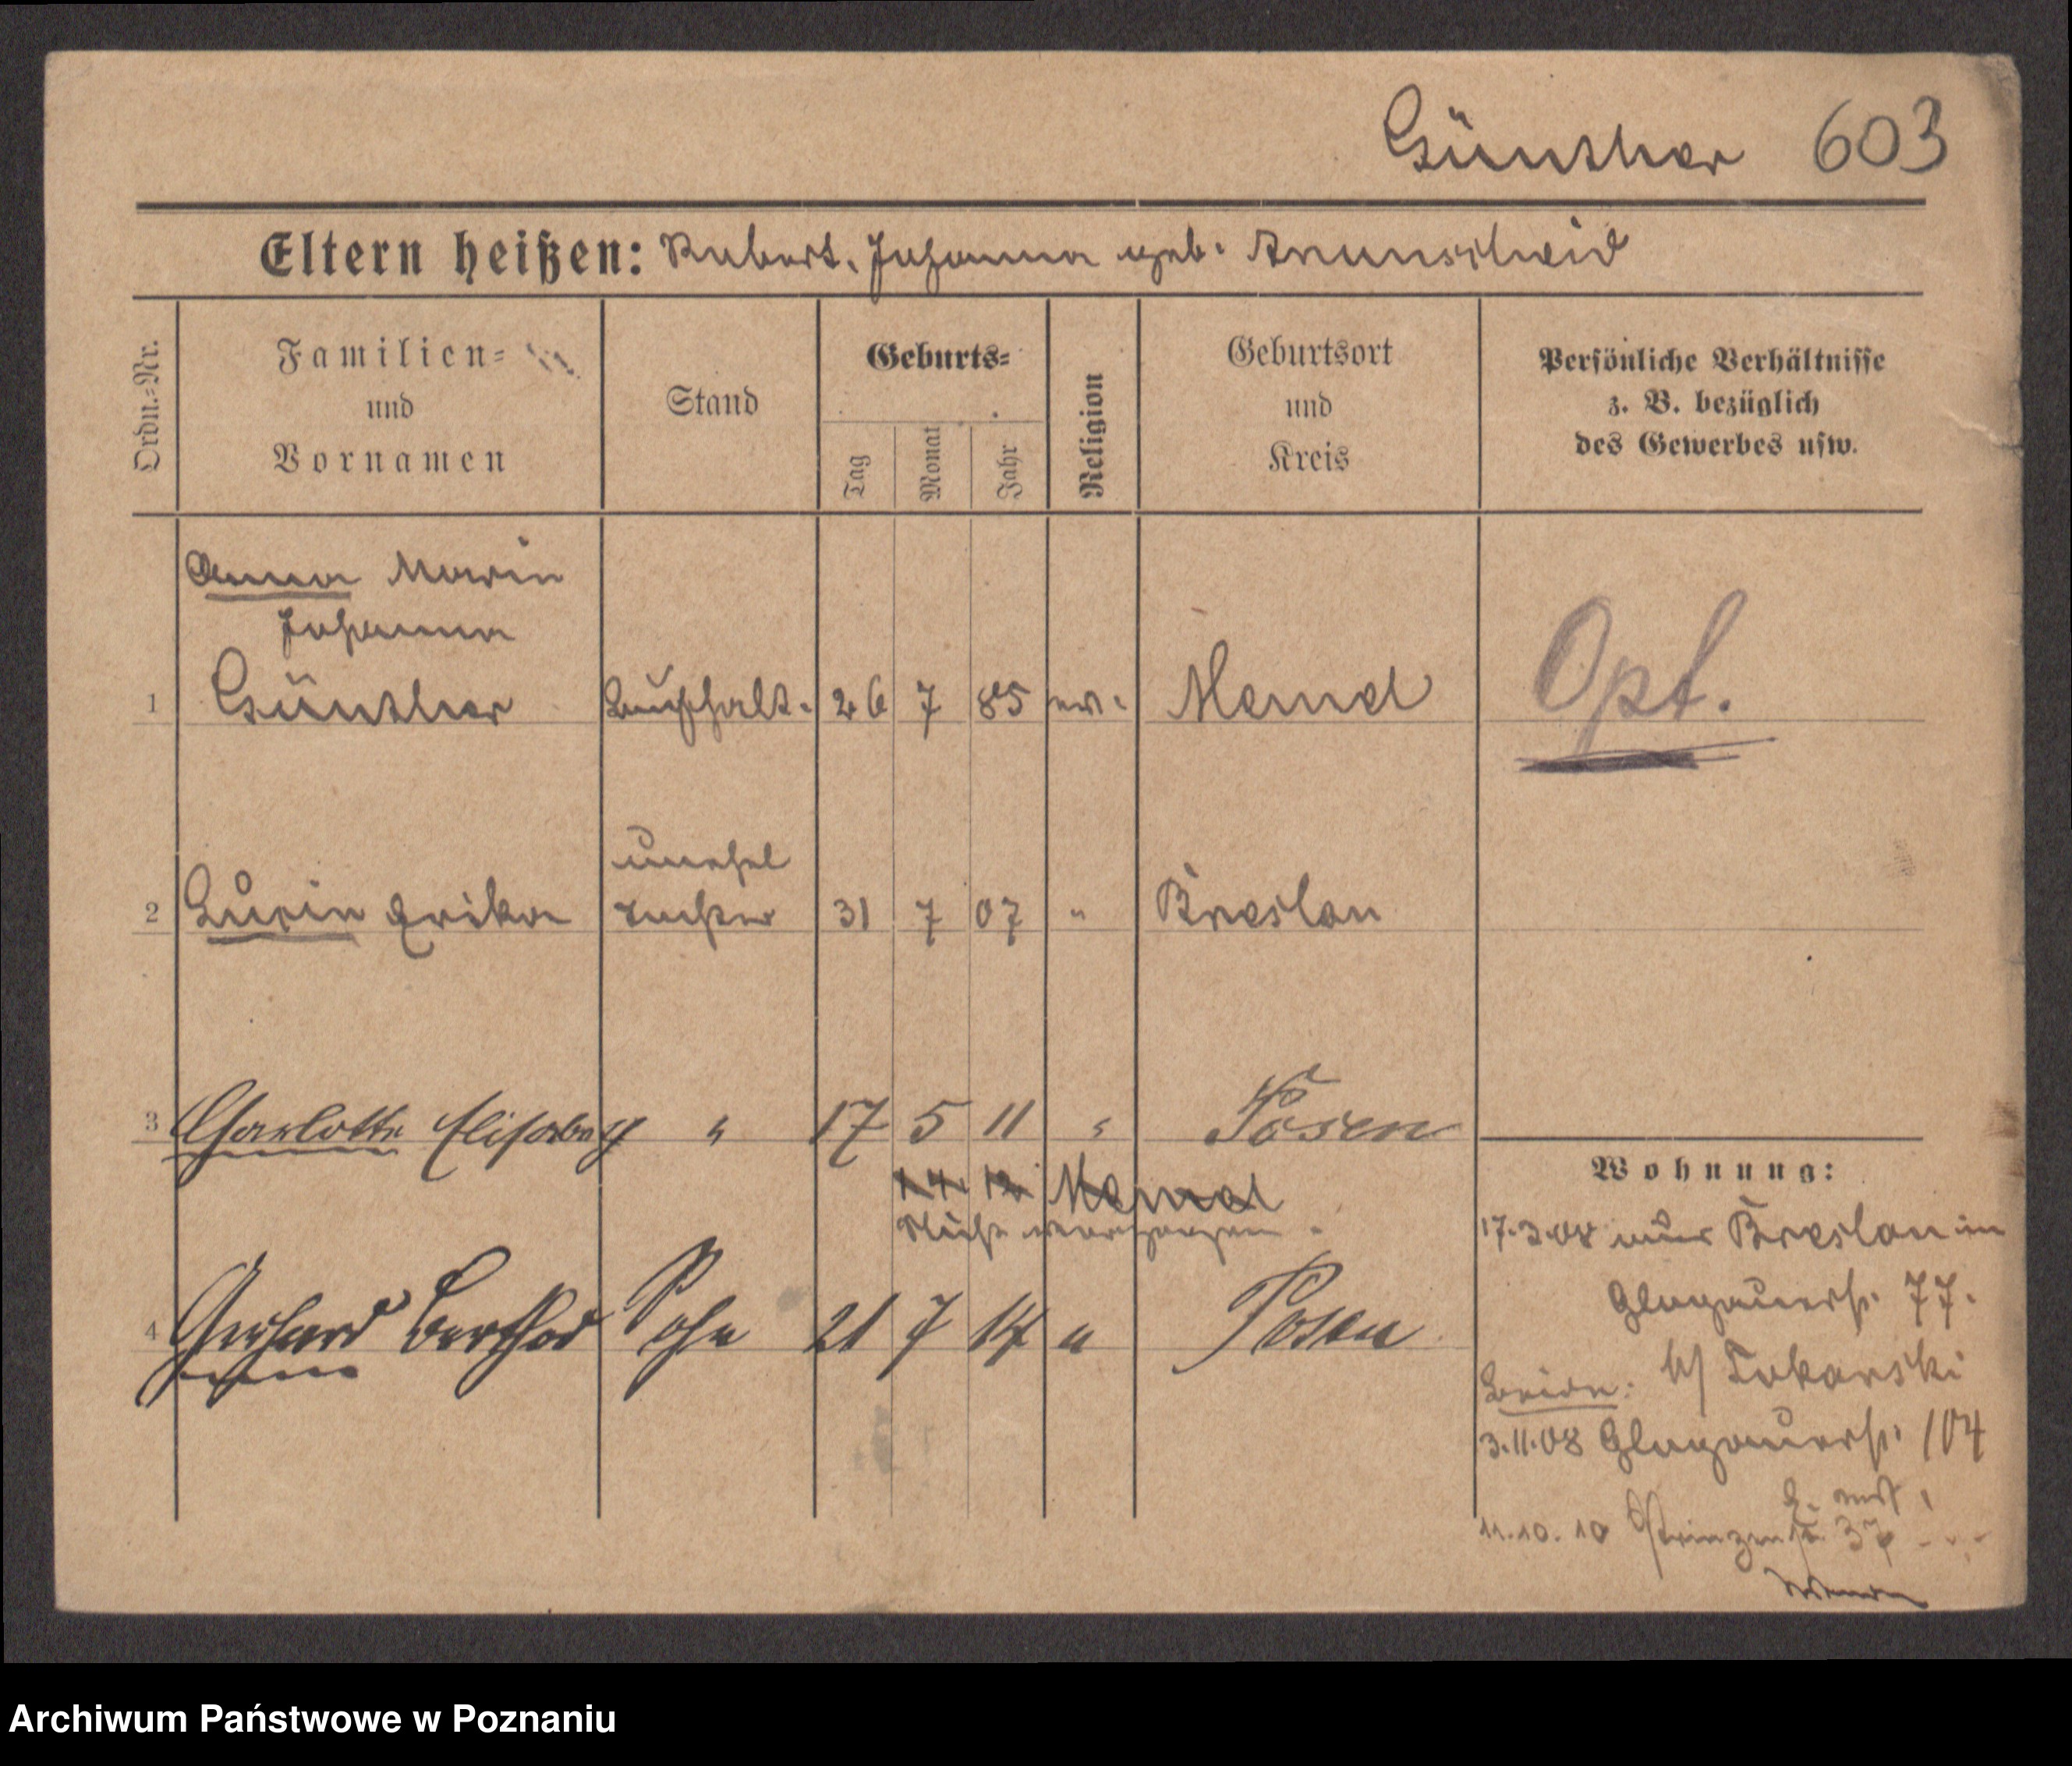 Günther 603
Eltern heißen: Robert, Johanna geb.
Ordn.=Nr.
Familien=
und
Vornamen
Stand
Geburts=
Tag
Monat
Jahr
Religion
Geburtsort
und
Kreis
Persönliche Verhältnisse
z. B. bezüglich
des Gewerbes usw.
Anna Marie
Johanna
1 Günther Buchhalt. 26 7 85 ev. Memel
Opt.
unehel
2 Erika Tochter 31 7 07 " Breslau
3 Charlotte Elisabeth " 17 5 11 " Posen
14. 12. Memel
Nicht
4 Gerhard Berthold Sohn 21 7 14 " Posen
Wohnung:
17.3.08 aus Breslau in
Glogauerst. 77.
b/ Tokarski
3.11.08 Glogauerst. 104
11.10.10 Prinzenst. 37
Wenden
Archiwum Państwowe w Poznaniu